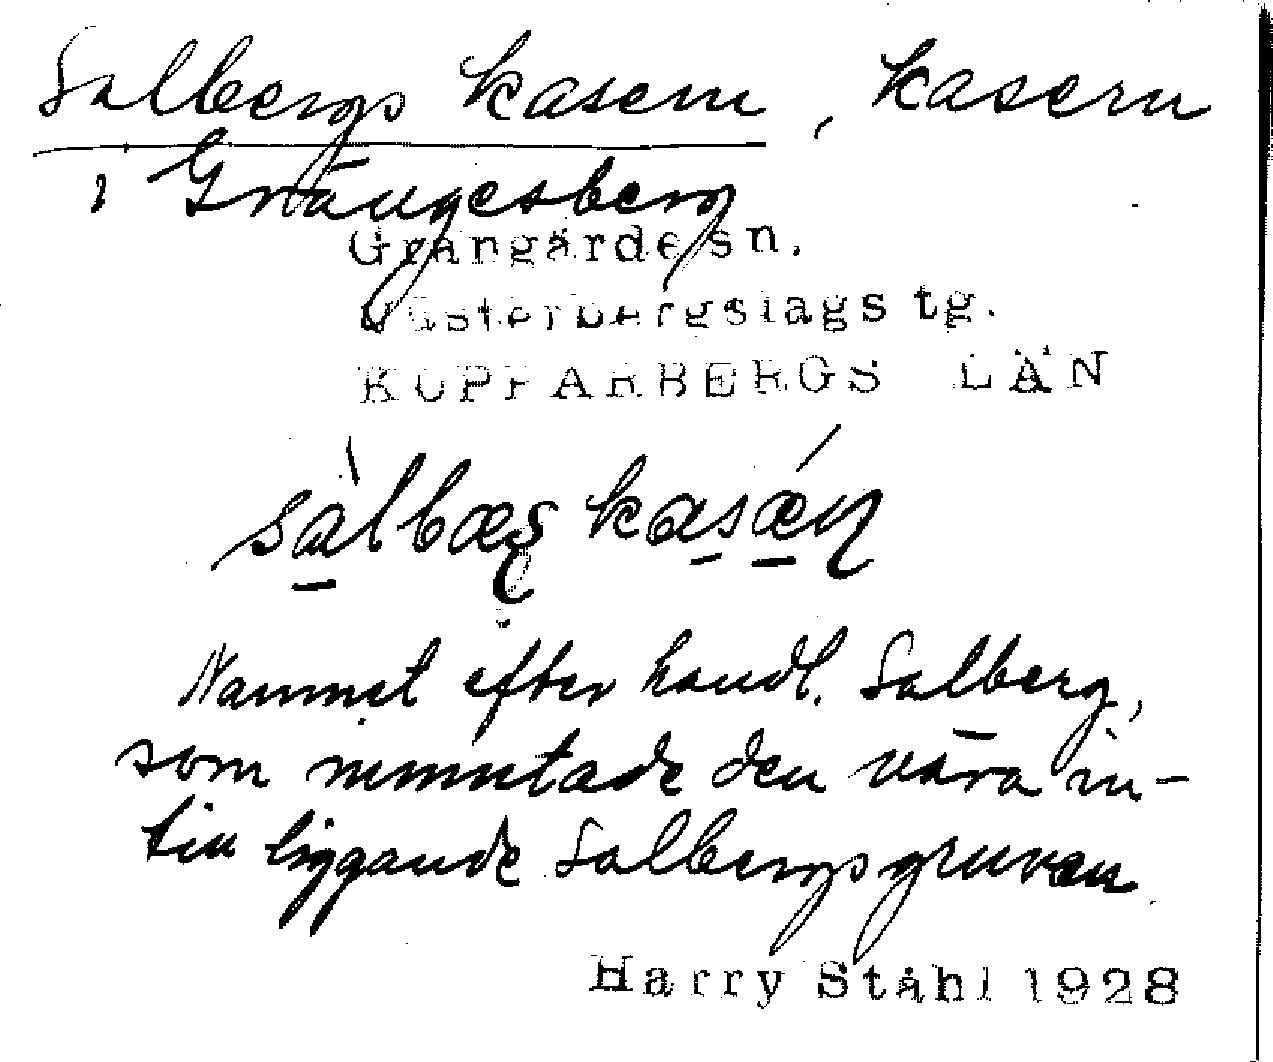 Salbergs kasern, kasern
i Grängesberg
Grangärde sn.
Västerbergslags tg.
KOPPARBERGS LÄN
sàlbæș kasǽṇ
Namnet efter handl. Salberg,
som inmutade den nära in-
till liggande Salbergsgruvan
Harry Ståhl 1928